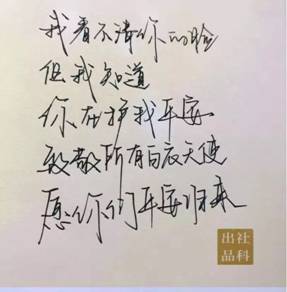 我看不清你的脸
但我知道
你在护我平安
致敬所有白衣天使
愿你们平安归来
出社
品科